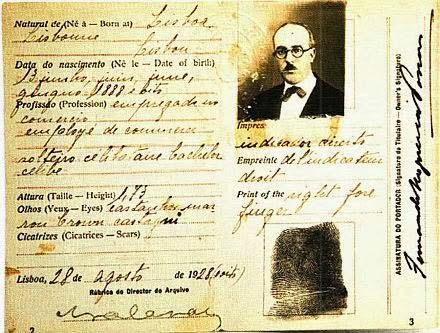 Natural de (Né à — Born at) Lisboa
Lisbonne
Lisbon
Data do nascimento (Né le — Date of birth)
13 junho, juin, june,
giugno 1888 e oito
Profissão (Profession) empregado no
comercio
employé de commerce
solteiro célibataire bachelor
celibe
Altura (Taille — Height) 1,73
Olhos (Yeux — Eyes) castanhos mar
ron brown castagni
Cicatrizes (Cicatrices — Scars)
Lisboa, 28 de agosto de 1928 (oito)
Rúbrica do Director do Arquivo
2
Impres.
indicador direito
Empreinte de l'indicateur
droit
Print of the right fore
finger
3
ASSINATURA DO PORTADOR (Signature du Titulaire — Owner's Signature)
Fernando Nogueira Pessoa